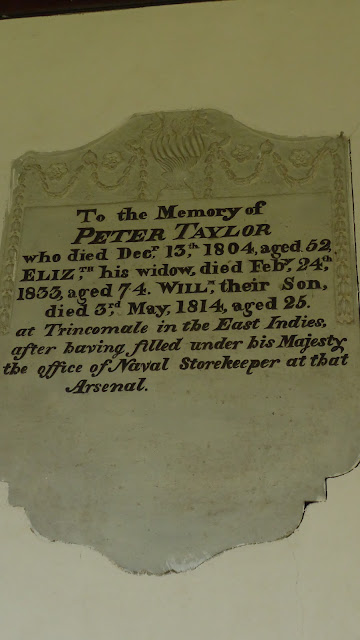 To the Memory of
PETER TAYLOR
who died Decr. 13th. 1804, aged 52,
ELIZTH. his widow, died Feby. 24th.
1833, aged 74. WILLM. their Son,
died 3rd. May, 1814, aged 25.
at Trincomale in the East Indies,
after having filled under his Majesty
the office of Naval Storekeeper at that
Arsenal.